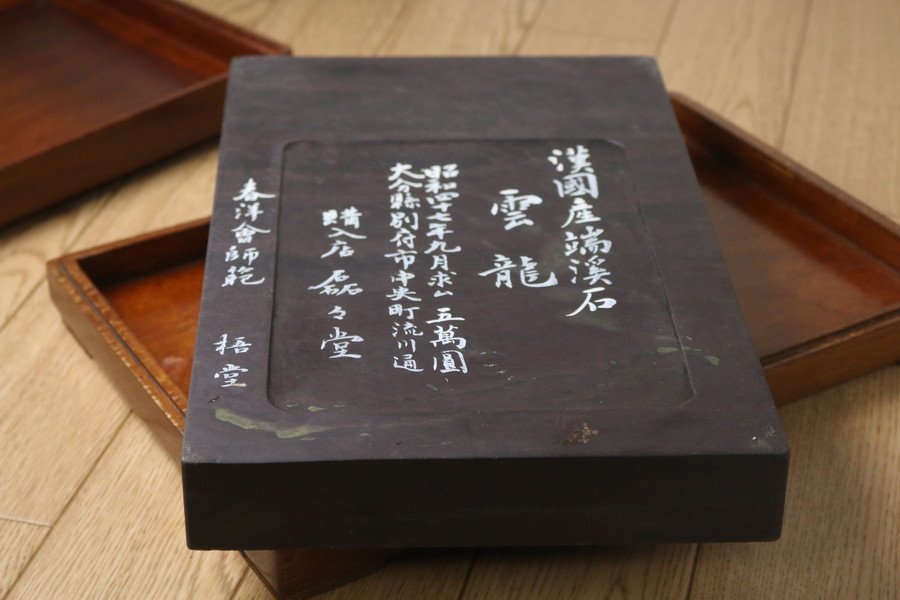 漢國産端溪石
雲龍
昭和四十七年九月求ム 五萬圓
大分縣別府市中央町流川通
購入店 磊々堂
春洋會師範 梧堂